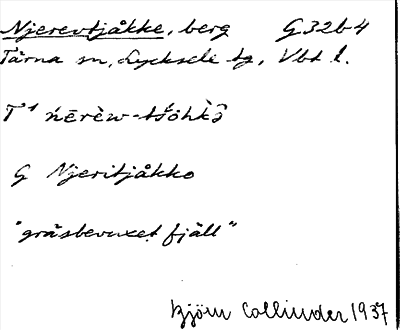 Njerevtjåkke, berg G32b4
Tärna sn, Lycksele tg, Vbt l.
T¹ ńērèw-tśŏhkɛ̀
G Njeritjåkko
"gräsbevuxet fjäll"
Björn Collinder 1937